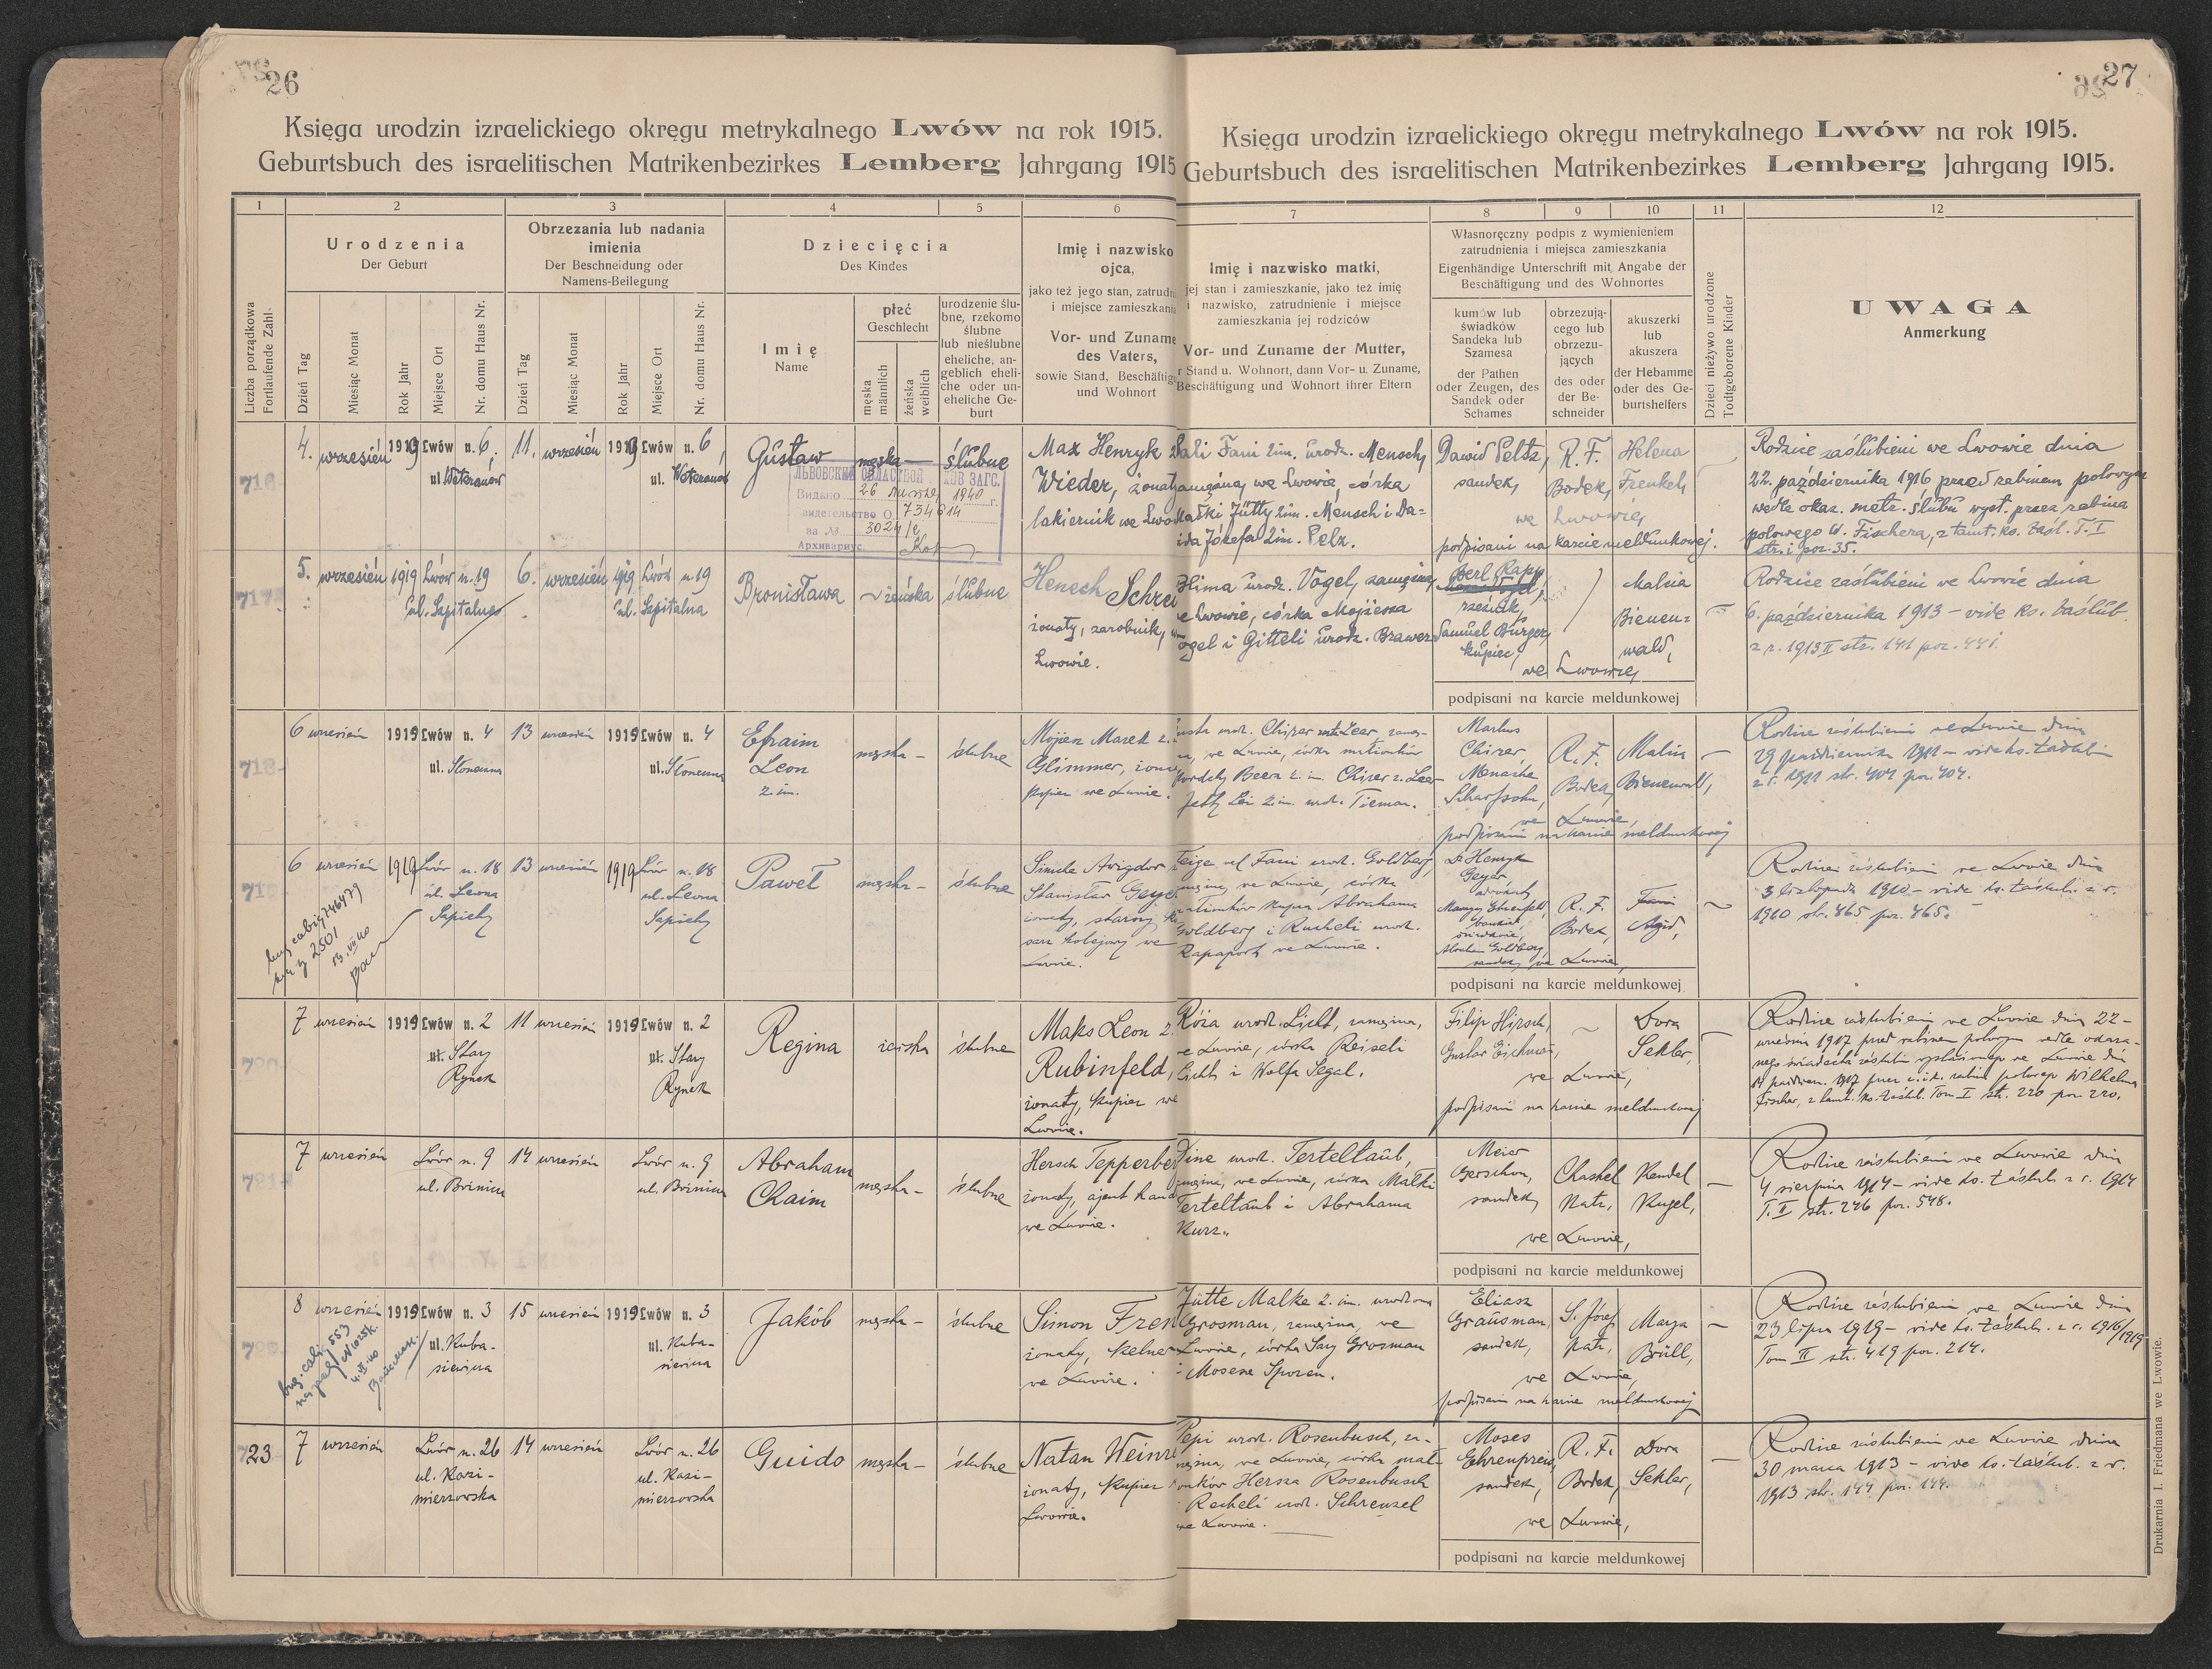 26
Księga urodzin izraelickiego okręgu metrykalnego Lwów na rok 1915.
Geburtsbuch des israelitischen Matrikenbezirkes Lemberg Jahrgang 1915
1 2 3 4 5 6
Liczba porządkowa
Fortlaufende Zahl
Urodzenia
Der Geburt
Dzień Tag
Miesiąc Monat
Rok Jahr
Miejsce Ort
Nr. domu Haus Nr.
Obrzezania lub nadania
imienia
Der Beschneidung oder
Namens-Beilegung
Dzień Tag
Miesiąc Monat
Rok Jahr
Miejsce Ort
Nr. domu Haus Nr.
Dziecięcia
Des Kindes
Imię
Name
płeć
Geschlecht
męska
männlich
żeńska
weiblich
urodzenie ślu-
bne, rzekomo
ślubne
lub nieślubne
eheliche, an-
geblich eheli-
che oder un-
eheliche Ge-
burt
Imię i nazwisko
ojca,
jako też jego stan, zatrudn
i miejsce zamieszkania
Vor- und Zuname
des Vaters,
sowie Stand, Beschäftig
und Wohnort
716
4. wrzesień 1919 Lwów n. 6, 11. wrzesień 1919 Lwów n. 6,
ul. Weteranów ul. Weteranów
Gustaw męska — ślubne
Max Henryk
Wieder, żonaty
lakiernik we Lwow
ЛЬВОВСКИЙ ОБЛАСТНОЙ ЗАГС.
Видано 26 1940 г.
О. 734014
за № 3024/е
Архивариус
717
5. wrzesień 1919 Lwów n. 19 6. wrzesień 1919 Lwów n 19
ul. Szpitalna ul. Szpitalna
Bronisława żeńska ślubne
Henech Schrei
żonaty, zarobnik, we
Lwowie.
718
6 wrzesień 1919 Lwów n. 4 13 wrzesień 1919 Lwów n. 4
ul. Słoneczna ul. Słoneczna
Efraim
Leon
2. im.
męska — ślubne
Mojżesz Marek 2.
Glimmer, żona
kupiec we Lwowie.
719
6 wrzesień 1919 Lwów n. 18 13 wrzesień 1919 Lwów n. 18
ul. Leona ul. Leona
Sapiehy Sapiehy
2501
Paweł męska — ślubne
Simche Awigdor
Stanisław Geye
żonaty, starszy
kolejowy we
Lwowie.
720
7 wrzesień 1919 Lwów n. 2 11 wrzesień 1919 Lwów n. 2
ul. Stary ul. Stary
Rynek Rynek
Regina żeńska ślubne
Maks Leon 2.
Rubinfeld,
żonaty, kupiec we
Lwowie.
721
7 wrzesień Lwów n. 9 14 wrzesień Lwów n. 9
Abraham
Chaim
męska — ślubne
Hersch Tepperber
żonaty, ajent hand
we Lwowie.
722
8 wrzesień 1919 Lwów n. 3 15 wrzesień 1919 Lwów n. 3
ul. Kuba- ul. Kuba-
siewicza siewicza
Jakób męska — ślubne
Simon Fren
żonaty, kelner
we Lwowie.
723
7 wrzesień Lwów n. 26 14 wrzesień Lwów n. 26
ul. Kazi- ul. Kazi-
mierzowska mierzowska
Guido męska — ślubne
Natan Weinre
żonaty, kupiec
Lwowie.
27
Księga urodzin izraelickiego okręgu metrykalnego Lwów na rok 1915.
Geburtsbuch des israelitischen Matrikenbezirkes Lemberg Jahrgang 1915.
7 8 9 10 11 12
Imię i nazwisko matki,
jej stan i zamieszkanie, jako też imię
i nazwisko, zatrudnienie i miejsce
zamieszkania jej rodziców
Vor- und Zuname der Mutter,
r Stand u. Wohnort, dann Vor- u. Zuname,
Beschäftigung und Wohnort ihrer Eltern
Własnoręczny podpis z wymienieniem
zatrudnienia i miejsca zamieszkania
Eigenhändige Unterschrift mit Angabe der
Beschäftigung und des Wohnortes
kumów lub
świadków
Sandeka lub
Szamesa
der Pathen
oder Zeugen, des
Sandek oder
Schames
obrzezują-
cego lub
obrzezu-
jących
des oder
der Be-
schneider
akuszerki
lub
akuszera
der Hebamme
oder des Ge-
burtshelfers
Dzieci nieżywo urodzone
Todtgeborene Kinder
UWAGA
Anmerkung
Sali Fani 2im. urodz. Mensch,
zamężna, we Lwowie, córka
Matki Jütty 2im. Mensch i Da-
wida Józefa 2im. Pelz.
Dawid Peltz,
sandek,
R. F.
Bodek,
Helena
Frenkel,
we Lwowie,
podpisani na karcie meldunkowej.
Rodzice zaślubieni we Lwowie dnia
22. października 1916 przed rabinem polowym
wedle okaz. metr. ślubu wyst. przez rabina
polowego W. Fischera, z tamt. ks. zaśl. T. I
str. i poz. 35.
Hima urodz. Vogel, zamężna
we Lwowie, córka Mojżesza
Vogel i Gitteli urodz. Brawer
Berl Rapp
rzeźnik,
Samuel Burger,
kupiec,
Malia
Bienen-
wald,
we Lwowie,
podpisani na karcie meldunkowej
Rodzice zaślubieni we Lwowie dnia
6. października 1913 — vide ks. zaślub.
z r. 1913 II str. 141 poz. 441.
Markus
Chizer,
Menasche
Scharfsohn,
R. F.
Bodek,
Malia
Bienenwald,
we Lwowie,
podpisani na karcie meldunkowej
Rodzice zaślubieni we Lwowie dnia
29 października 1911 — vide ks. zaślubin
z r. 1911 str. 404 poz. 404.
Feige vel Fani urodz. Goldberg,
zamężna, we Lwowie, córka
małżonków kupca Abrahama
Goldberg i Racheli urodz.
Rapaport we Lwowie.
Dr Henryk
Geyer
adwokat,
Abraham Goldberg
sandek,
R. F.
Bodek,
we Lwowie,
podpisani na karcie meldunkowej
Rodzice zaślubieni we Lwowie dnia
3 listopada 1910 — vide ks. zaślub. z r.
1910 str. 465 poz. 465.
Róża urodz. Licht, zamężna,
we Lwowie, córka Reiseli
Licht i Wolfa Segal.
Filip Hirsch,
Gustav Eichman,
Dora
Sekler,
we Lwowie,
podpisani na karcie meldunkowej
Rodzice zaślubieni we Lwowie dnia 22-
września 1917 przed rabinem polowym wedle okaza-
nego świadectwa zaślubin we Lwowie dnia
paździer. 1917 przez c. i k. rabina polowego Wilhelma
Fischer, z tamt. ks. zaślub. Tom I str. 220 poz. 220.
Dine urodz. Terteltaub,
zamężna, we Lwowie, córka Malki
Terteltaub i Abrahama
Kurz.
Meier
Gerschon,
sandek,
Chaskel
Katz,
Kendel
Kugel,
we Lwowie,
podpisani na karcie meldunkowej
Rodzice zaślubieni we Lwowie dnia
4 sierpnia 1914 — vide ks. zaślub. z r. 1914
T. II str. 246 poz. 548.
Jütte Malke 2. im. urodzona
Grosman, zamężna, we
Lwowie, córka Sary Grosman
i Mosesa Sporen.
Eliasz
Grausman,
sandek,
S. Józef
Katz,
Marya
Brüll,
we Lwowie,
podpisani na karcie meldunkowej
Rodzice zaślubieni we Lwowie dnia
23 lipca 1919 — vide ks. zaślub. z r. 1916/1919
Tom II str. 419 poz. 214.
Pepi urodz. Rosenbusch, za-
mężna, we Lwowie, córka mał-
żonków Hersza Rosenbusch
i Racheli urodz. Schrenzel
we Lwowie.
Moses
Ehrenpreis,
sandek,
R. F.
Bodek,
Dora
Sekler,
we Lwowie,
podpisani na karcie meldunkowej
Rodzice zaślubieni we Lwowie dnia
30 marca 1913 — vide ks. zaślub. z r.
1913 str. 144 poz. 144.
Drukarnia I. Friedmana we Lwowie.